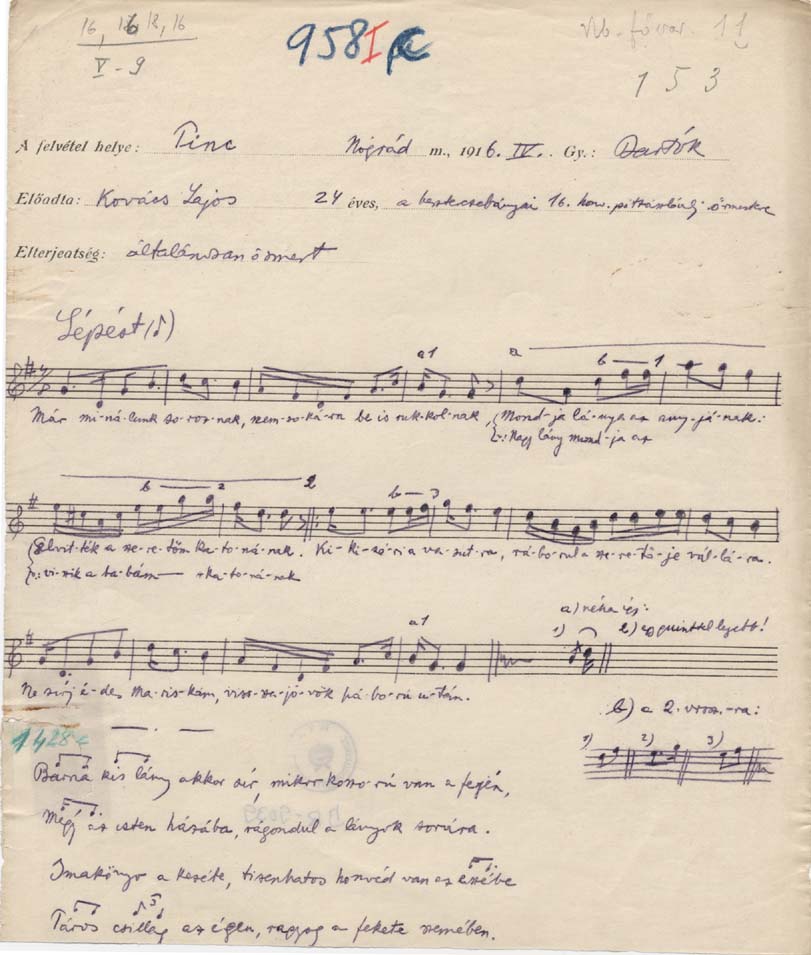 16, 16, 18, 16
V - 9
958 I
11
153
A felvétel helye: Tinc Nógrád m., 1916. IV. Gy.: Bartók
Előadta: Kovács Lajos 24 éves, a 16. honv.
Elterjeatség: általánosan ösmert
Lépést
a1 a b 1
Már mi-ná-lunk so-roz-nak, nem-so-ká-ra be is ruk-kol-nak, Mond-ja lá-nya az any-já-nak:
Nagy lány mond-ja az
b 2 2 b 3
Elvit-ték a sze-re-tőm ka-to-ná-nak. Ki-ki-sér-i a va-sut-ra, rá-bo-rul a sze-re-tő-je vál-lá-ra.
vi-szik a ba-bám ka-to-ná-nak
a1
a) néha is:
1) 2) egy quinttel lejebb!
Ne sírj é-des Ma-ris-kám, visz-sza-jö-vök há-bo-rú u-tán.
b) a 2. vrsz.-ra:
1) 2) 3)
1428c
Barna kis lány akkor sír, mikor koszo-rú van a fején,
Mégy az isten házába, rágondul a lányok sorúra.
Imakönyv a kezébe, tizenhatos honvéd van az eszébe
3
Táros csillag az égen, ragyog a fekete szemében.